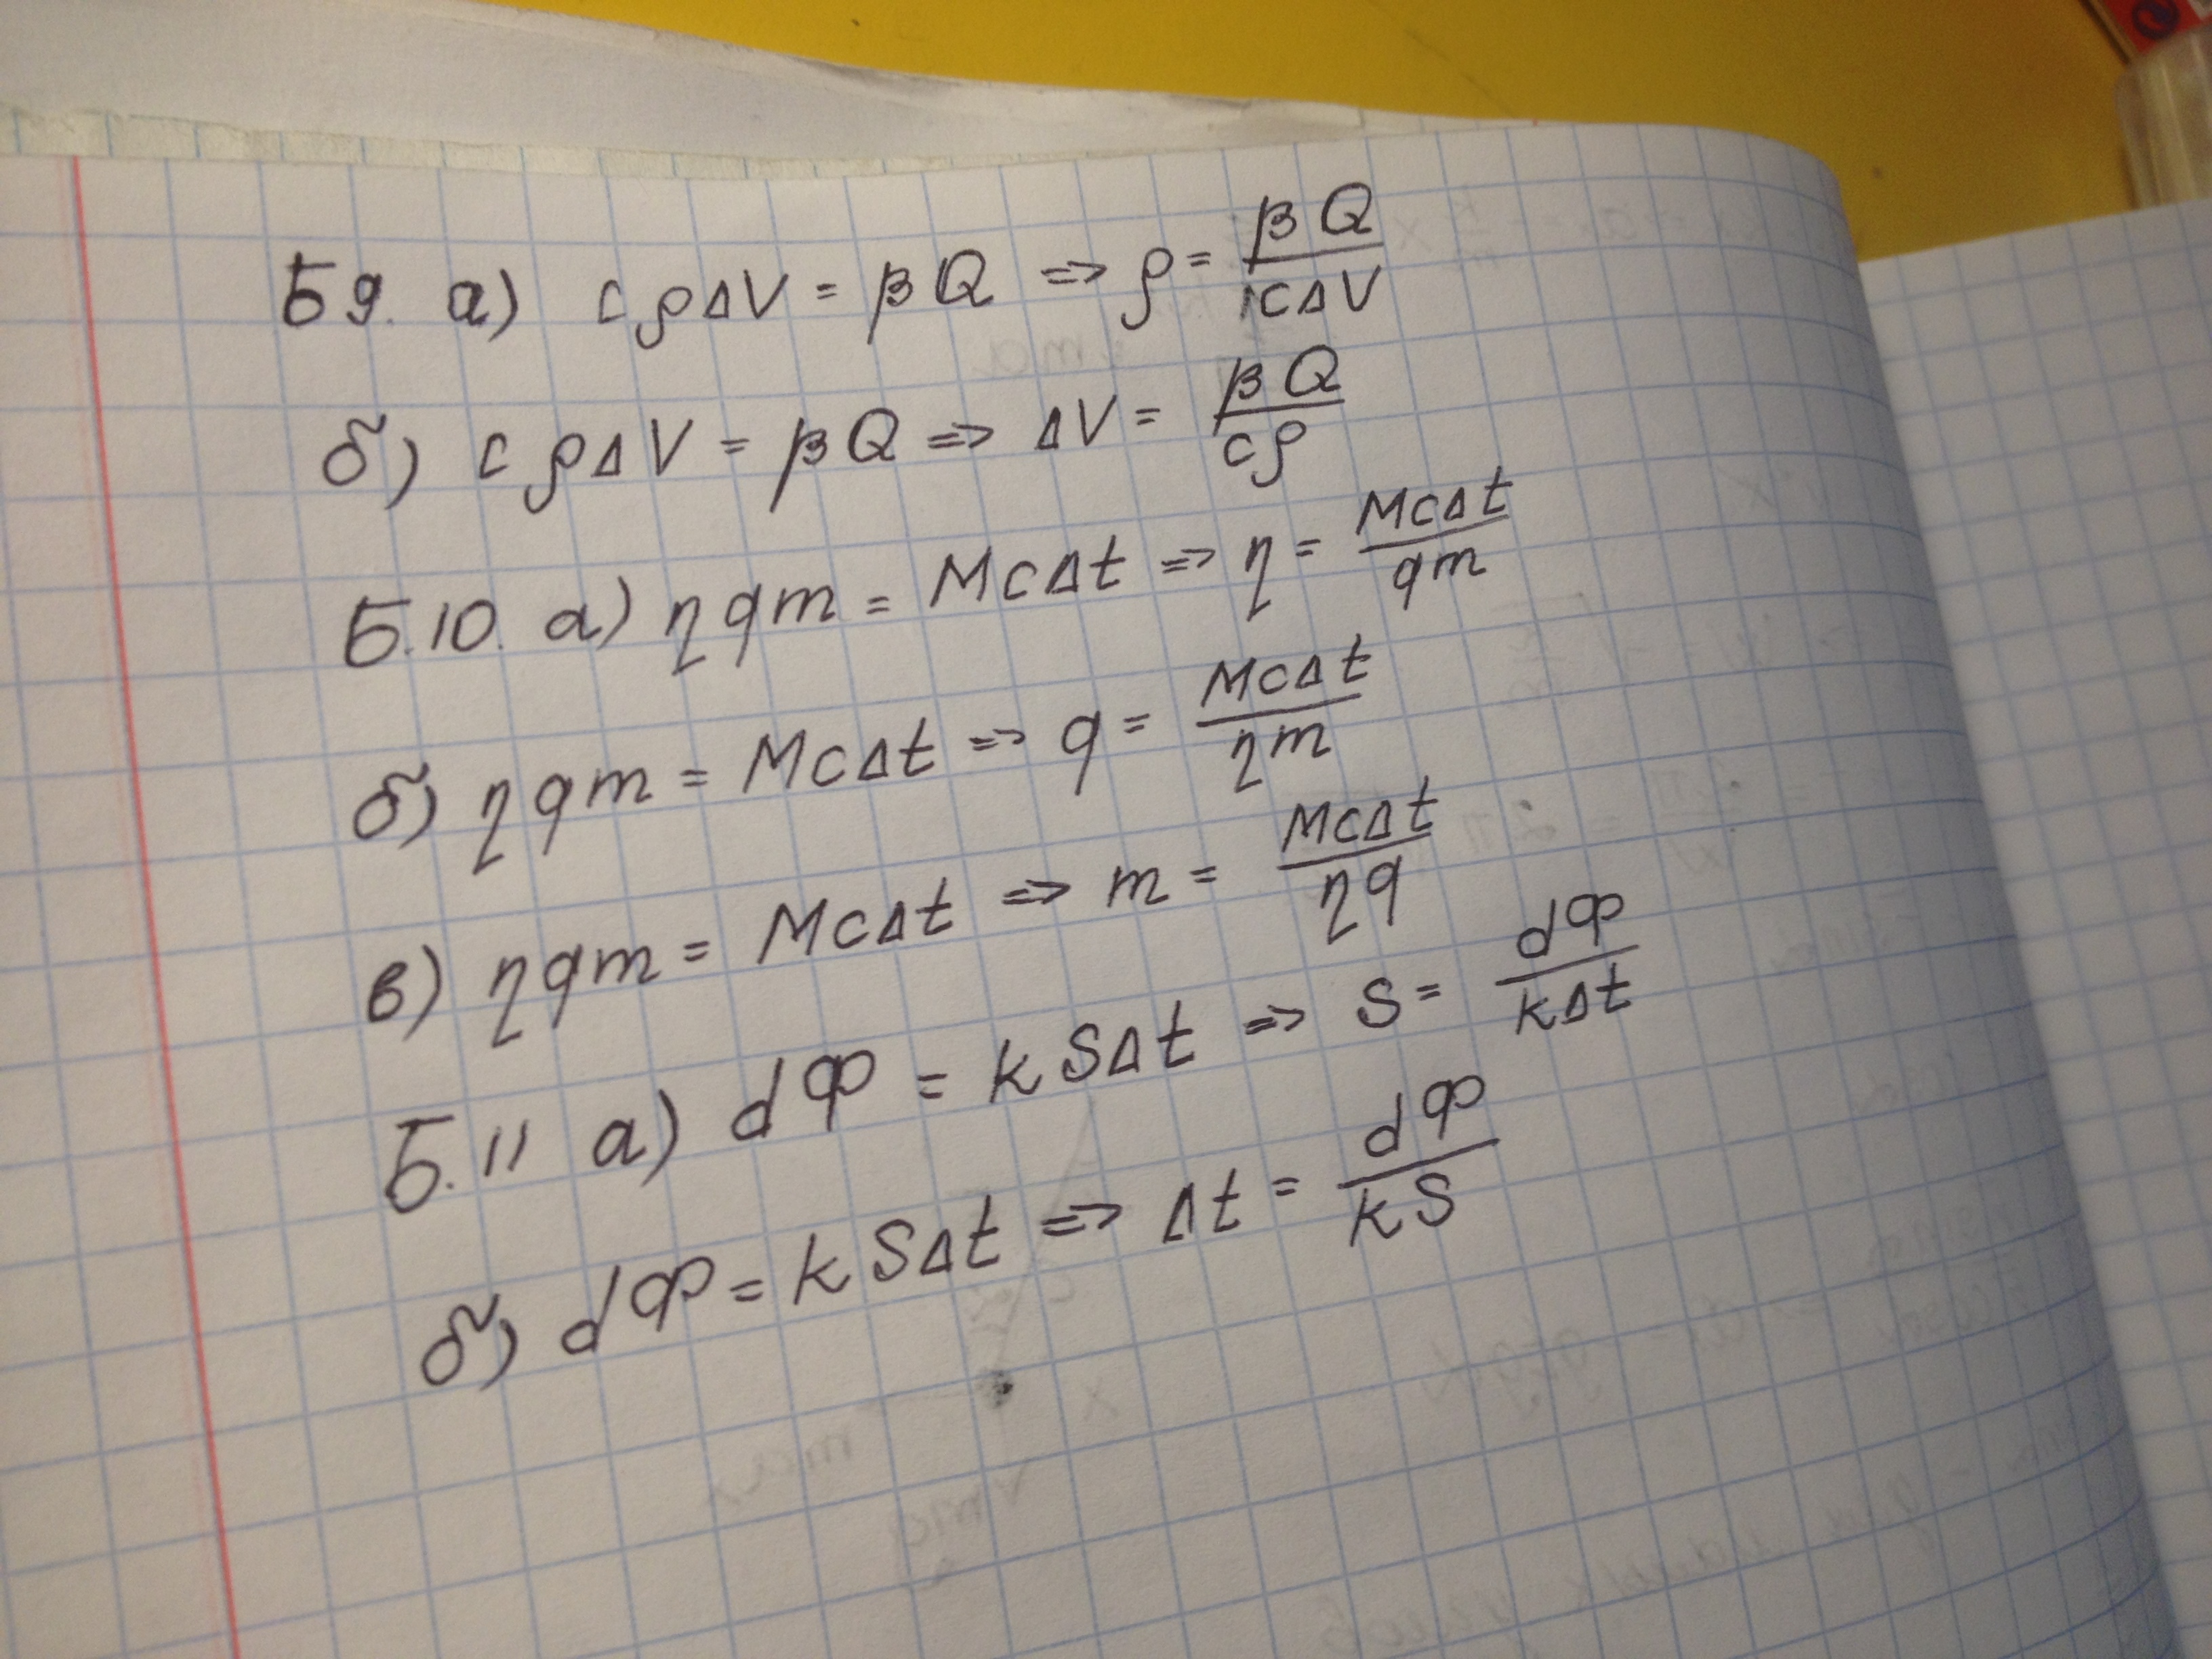 Б9. а) cρΔV = βQ => ρ = βQ / cΔV
б) cρΔV = βQ => ΔV = βQ / cρ
Б.10. а) ηqm = McΔt => η = McΔt / qm
б) ηqm = McΔt => q = McΔt / ηm
в) ηqm = McΔt => m = McΔt / ηq
Б.11 а) dФ = kSΔt => S = dФ / kΔt
б) dФ = kSΔt => Δt = dФ / kS